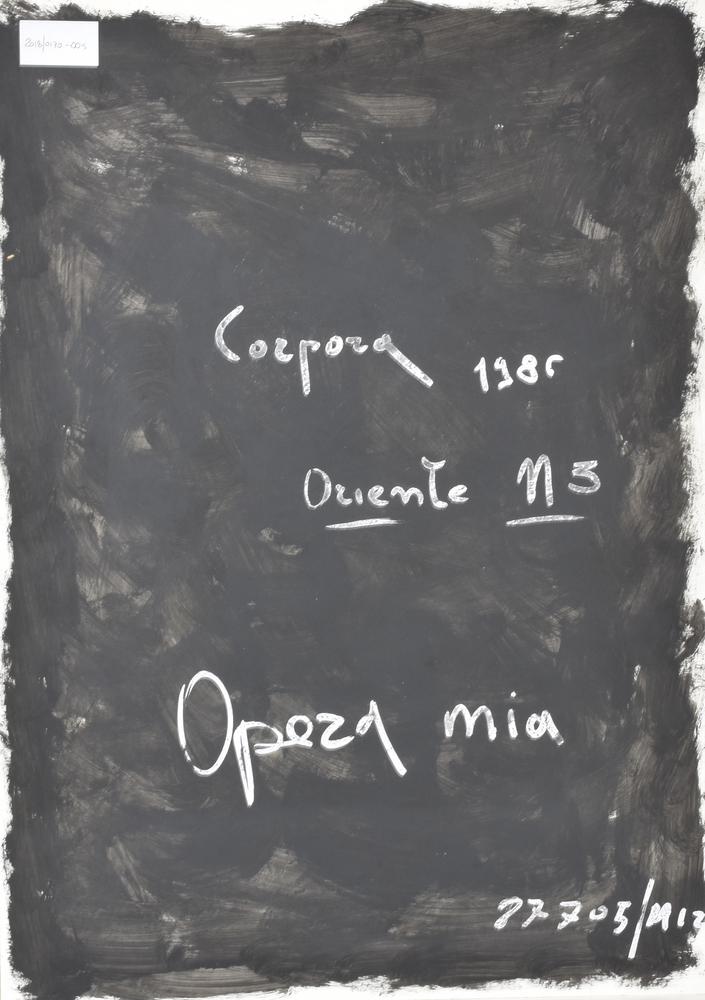 2018/0170-001
Corpora 1985
Oriente N 3
Opera mia
27705/M12